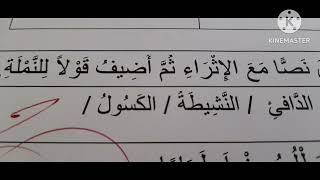 KINEMASTER
نَصًّا مَعَ الإِثْرَاءِ ثُمَّ أَضِيفُ قَوْلاً لِلنَّمْلَةِ
الدَّافِئِ / النَّشِيطَةُ / الكَسُولُ /